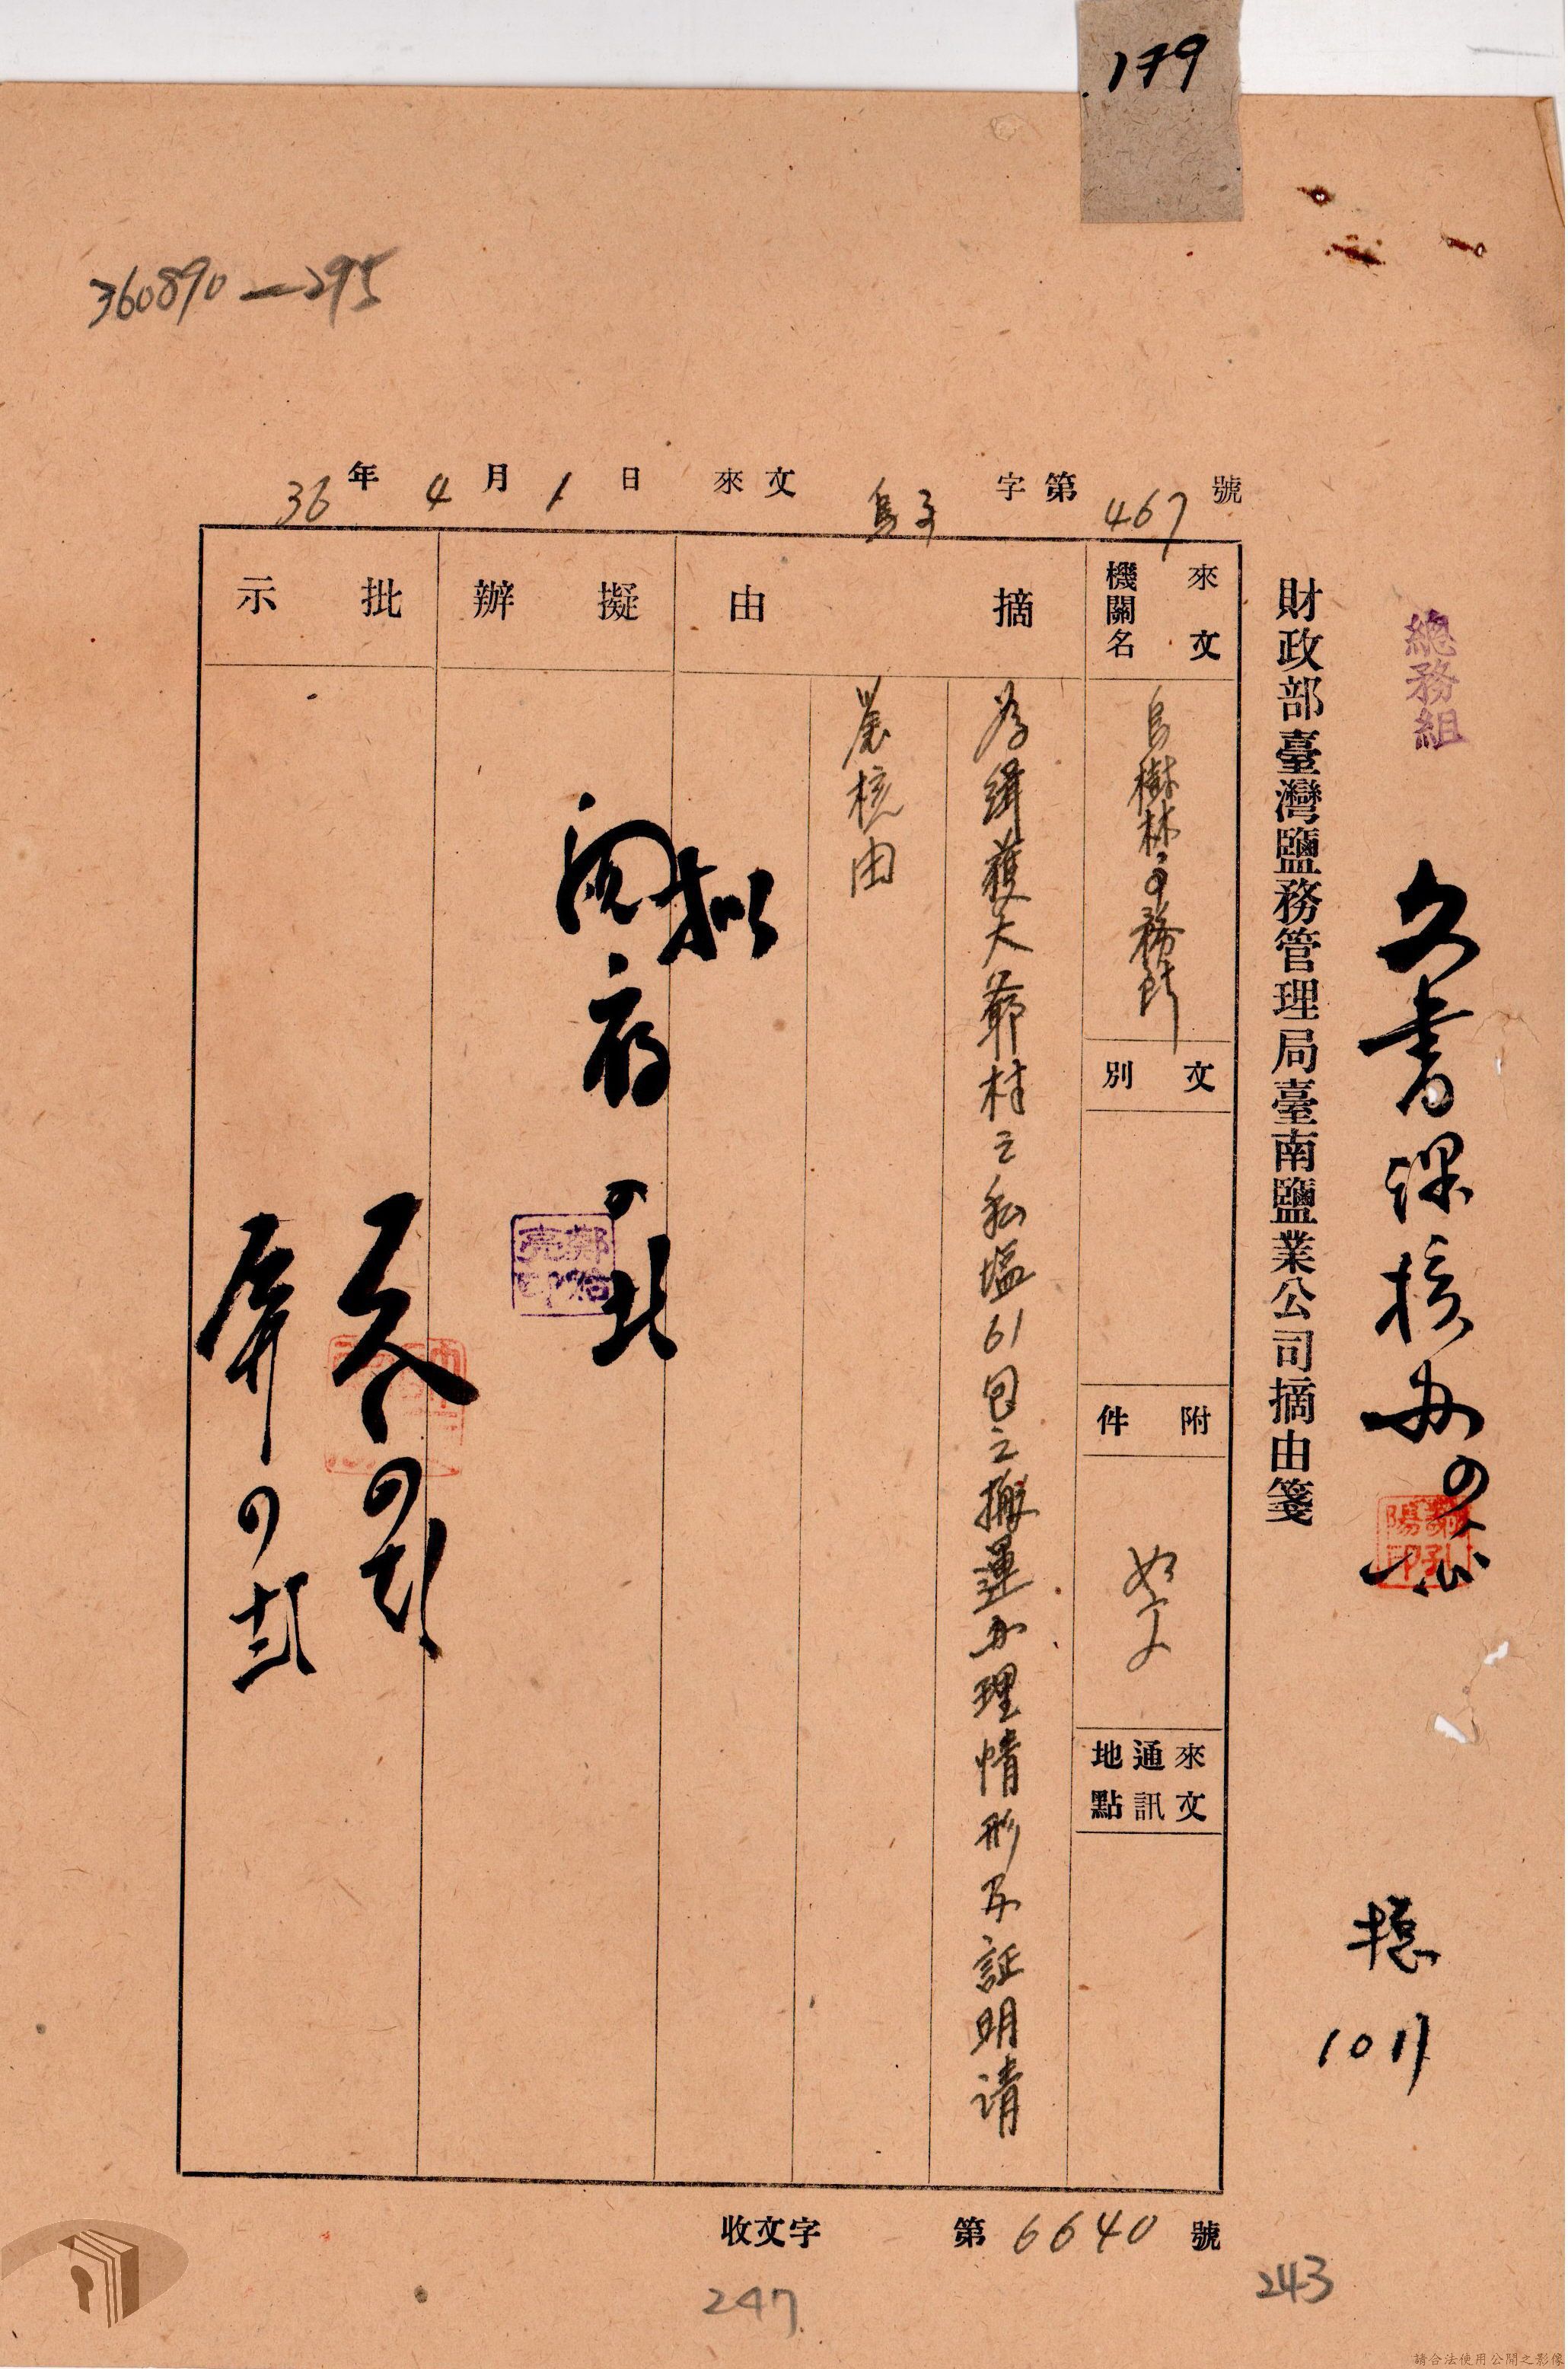 179
360890—295
總務組
文書課核办
謝孔陽印
總
1011
財政部臺灣鹽務管理局臺南鹽業公司摘由箋
36年4月1日來文烏子字第467號
來文機關名
烏樹林事務所
文別
附件
如文
來文通訊地點
摘由
為緝獲大爺村之私塩61包之搬運办理情形及証明请
鑒核由
擬辦
拟
存
批示
收文字第6640號
247
243
請合法使用公開之影像